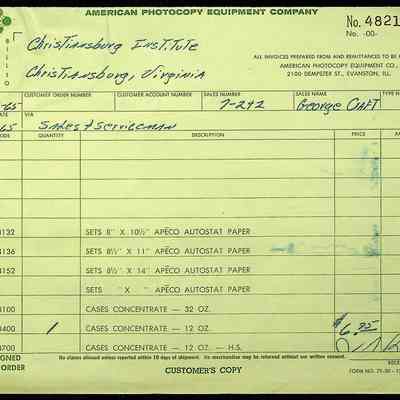 AMERICAN PHOTOCOPY EQUIPMENT COMPANY
No. 4821
No. -00-
Christiansburg Institute
Christiansburg, Virginia
ALL INVOICES PREPARED FROM AND REMITTANCES TO BE
AMERICAN PHOTOCOPY EQUIPMENT CO.,
2100 DEMPSTER ST., EVANSTON, ILL.
CUSTOMER ORDER NUMBER CUSTOMER ACCOUNT NUMBER SALES NUMBER SALES NAME TYPE
-65 7-242 George Craft
VIA
65 Sales & Serviceman
QUANTITY DESCRIPTION PRICE AM
132 SETS 8" X 10½" APĒCO AUTOSTAT PAPER
136 SETS 8½" X 11" APĒCO AUTOSTAT PAPER
152 SETS 8½" X 14" APĒCO AUTOSTAT PAPER
SETS " X " APĒCO AUTOSTAT PAPER
100 CASES CONCENTRATE — 32 OZ.
400 1 CASES CONCENTRATE — 12 OZ. $6.85
700 CASES CONCENTRATE — 12 OZ. — H.S.
No claims allowed unless reported within 10 days of shipment. No merchandise may be returned without our written consent.
ORDER CUSTOMER'S COPY FORM NO.